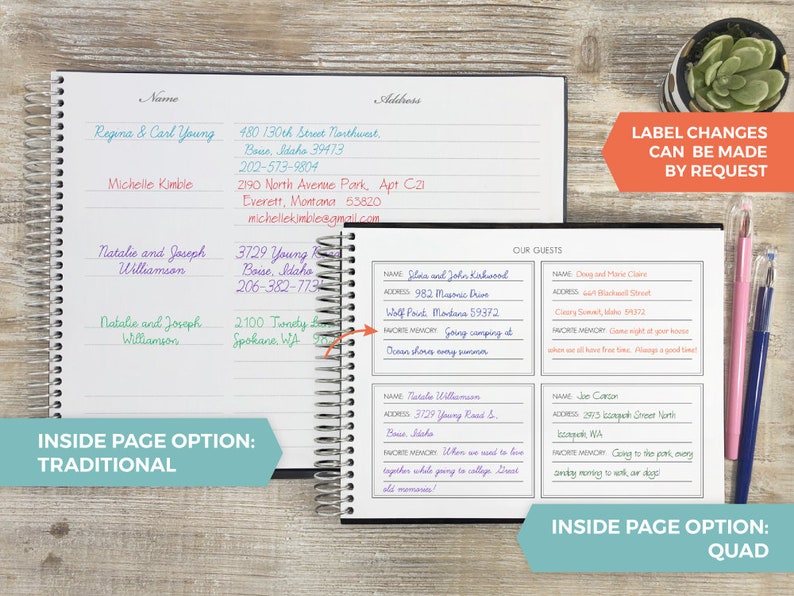 Name Address
Regina & Carl Young 480 130th Street Northwest,
Boise, Idaho 39473
202-573-9804
Michelle Kimble 2190 North Avenue Park, Apt C21
Everett, Montana 53820
michellekimble@gmail.com
Natalie and Joseph 3729 Young Road
Williamson Boise, Idaho
206-382-773
Natalie and Joseph 2100 Twnety
Williamson Spokane, WA
LABEL CHANGES
CAN BE MADE
BY REQUEST
OUR GUESTS
NAME: Silvia and John Kirkwood
ADDRESS: 982 Masonic Drive
Wolf Point, Montana 59372
FAVORITE MEMORY: Going camping at
Ocean shores every summer
NAME: Doug and Marie Claire
ADDRESS: 669 Blackwell Street
Cleary Summit, Idaho 59372
FAVORITE MEMORY: Game night at your house
when we all have free time. Always a good time!
NAME: Natalie Williamson
ADDRESS: 3729 Young Road S.,
Boise, Idaho
FAVORITE MEMORY: When we used to love
together while going to college. Great
old memories!
NAME: Joe Carson
ADDRESS: 2973 Issaquah Street North
Issaquah, WA
FAVORITE MEMORY: Going to the park every
sunday morning to walk our dogs!
INSIDE PAGE OPTION:
TRADITIONAL
INSIDE PAGE OPTION:
QUAD